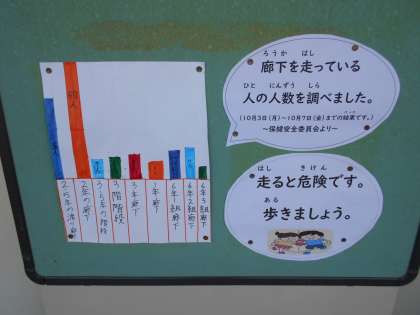 ろうか　はし
廊下を走っている
ひと　にんずう　しら
人の人数を調べました。
(10月3日(月)～10月7日(金)までの結果です。)
～保健安全委員会より～
はし　きけん
走ると危険です。
ある
歩きましょう。
2年の廊下
3階階段
3年廊下
1年廊下
6年1組廊下
6年2組廊下
6年3組廊下